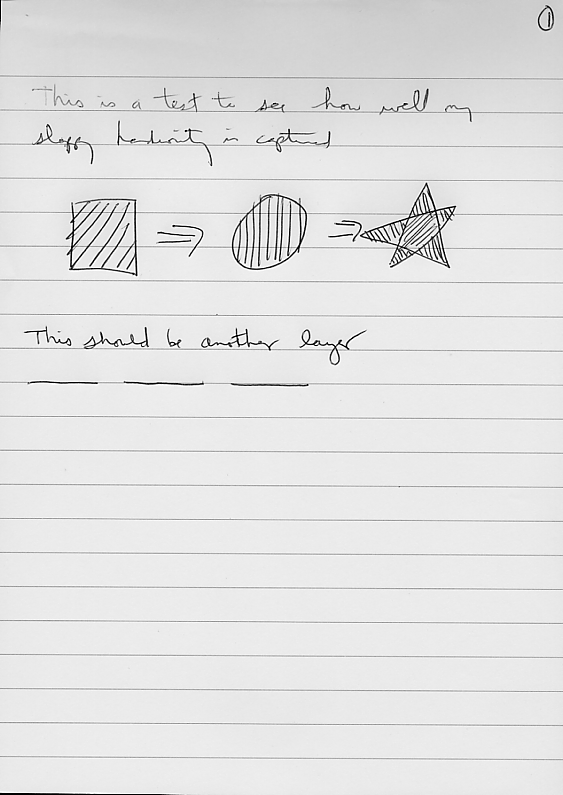 1
This is a test to see how well my
sloppy handwriting is captured
This should be another layer